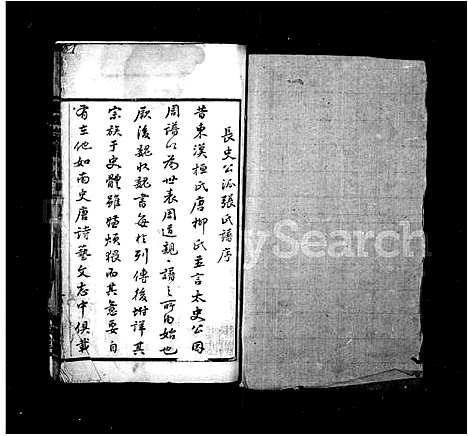 長史公派張氏譜序
昔東漢桓氏唐柳氏並言太史公因
周譜以為世表周道親親譜之所由始也
厥後魏收魏書每於列傳後附詳其
宗族于史體雖嫌煩猥而其意要自
有在他如南史唐詩藝文志中俱載
Search